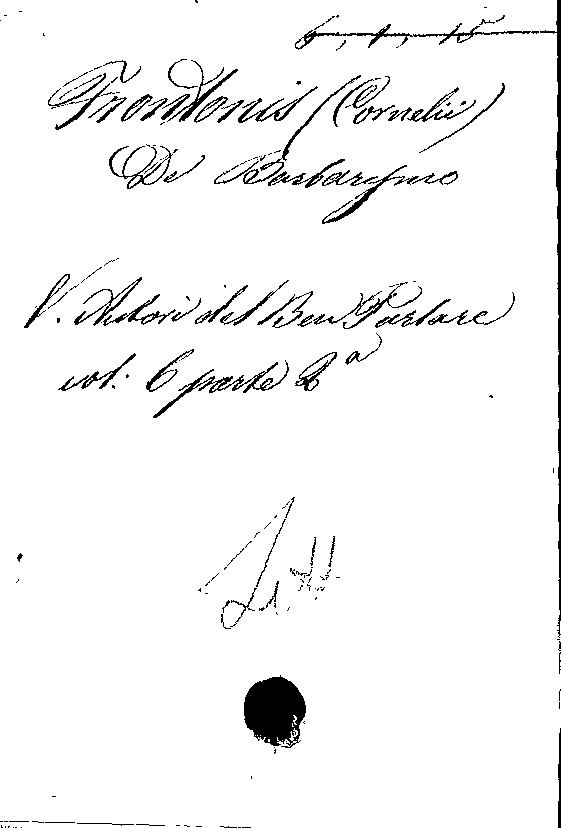 6, 1, 15
Frontonis (Cornelii)
De Barbarismo
V. Autori del Ben Parlare
vol: 6 parte 2ª